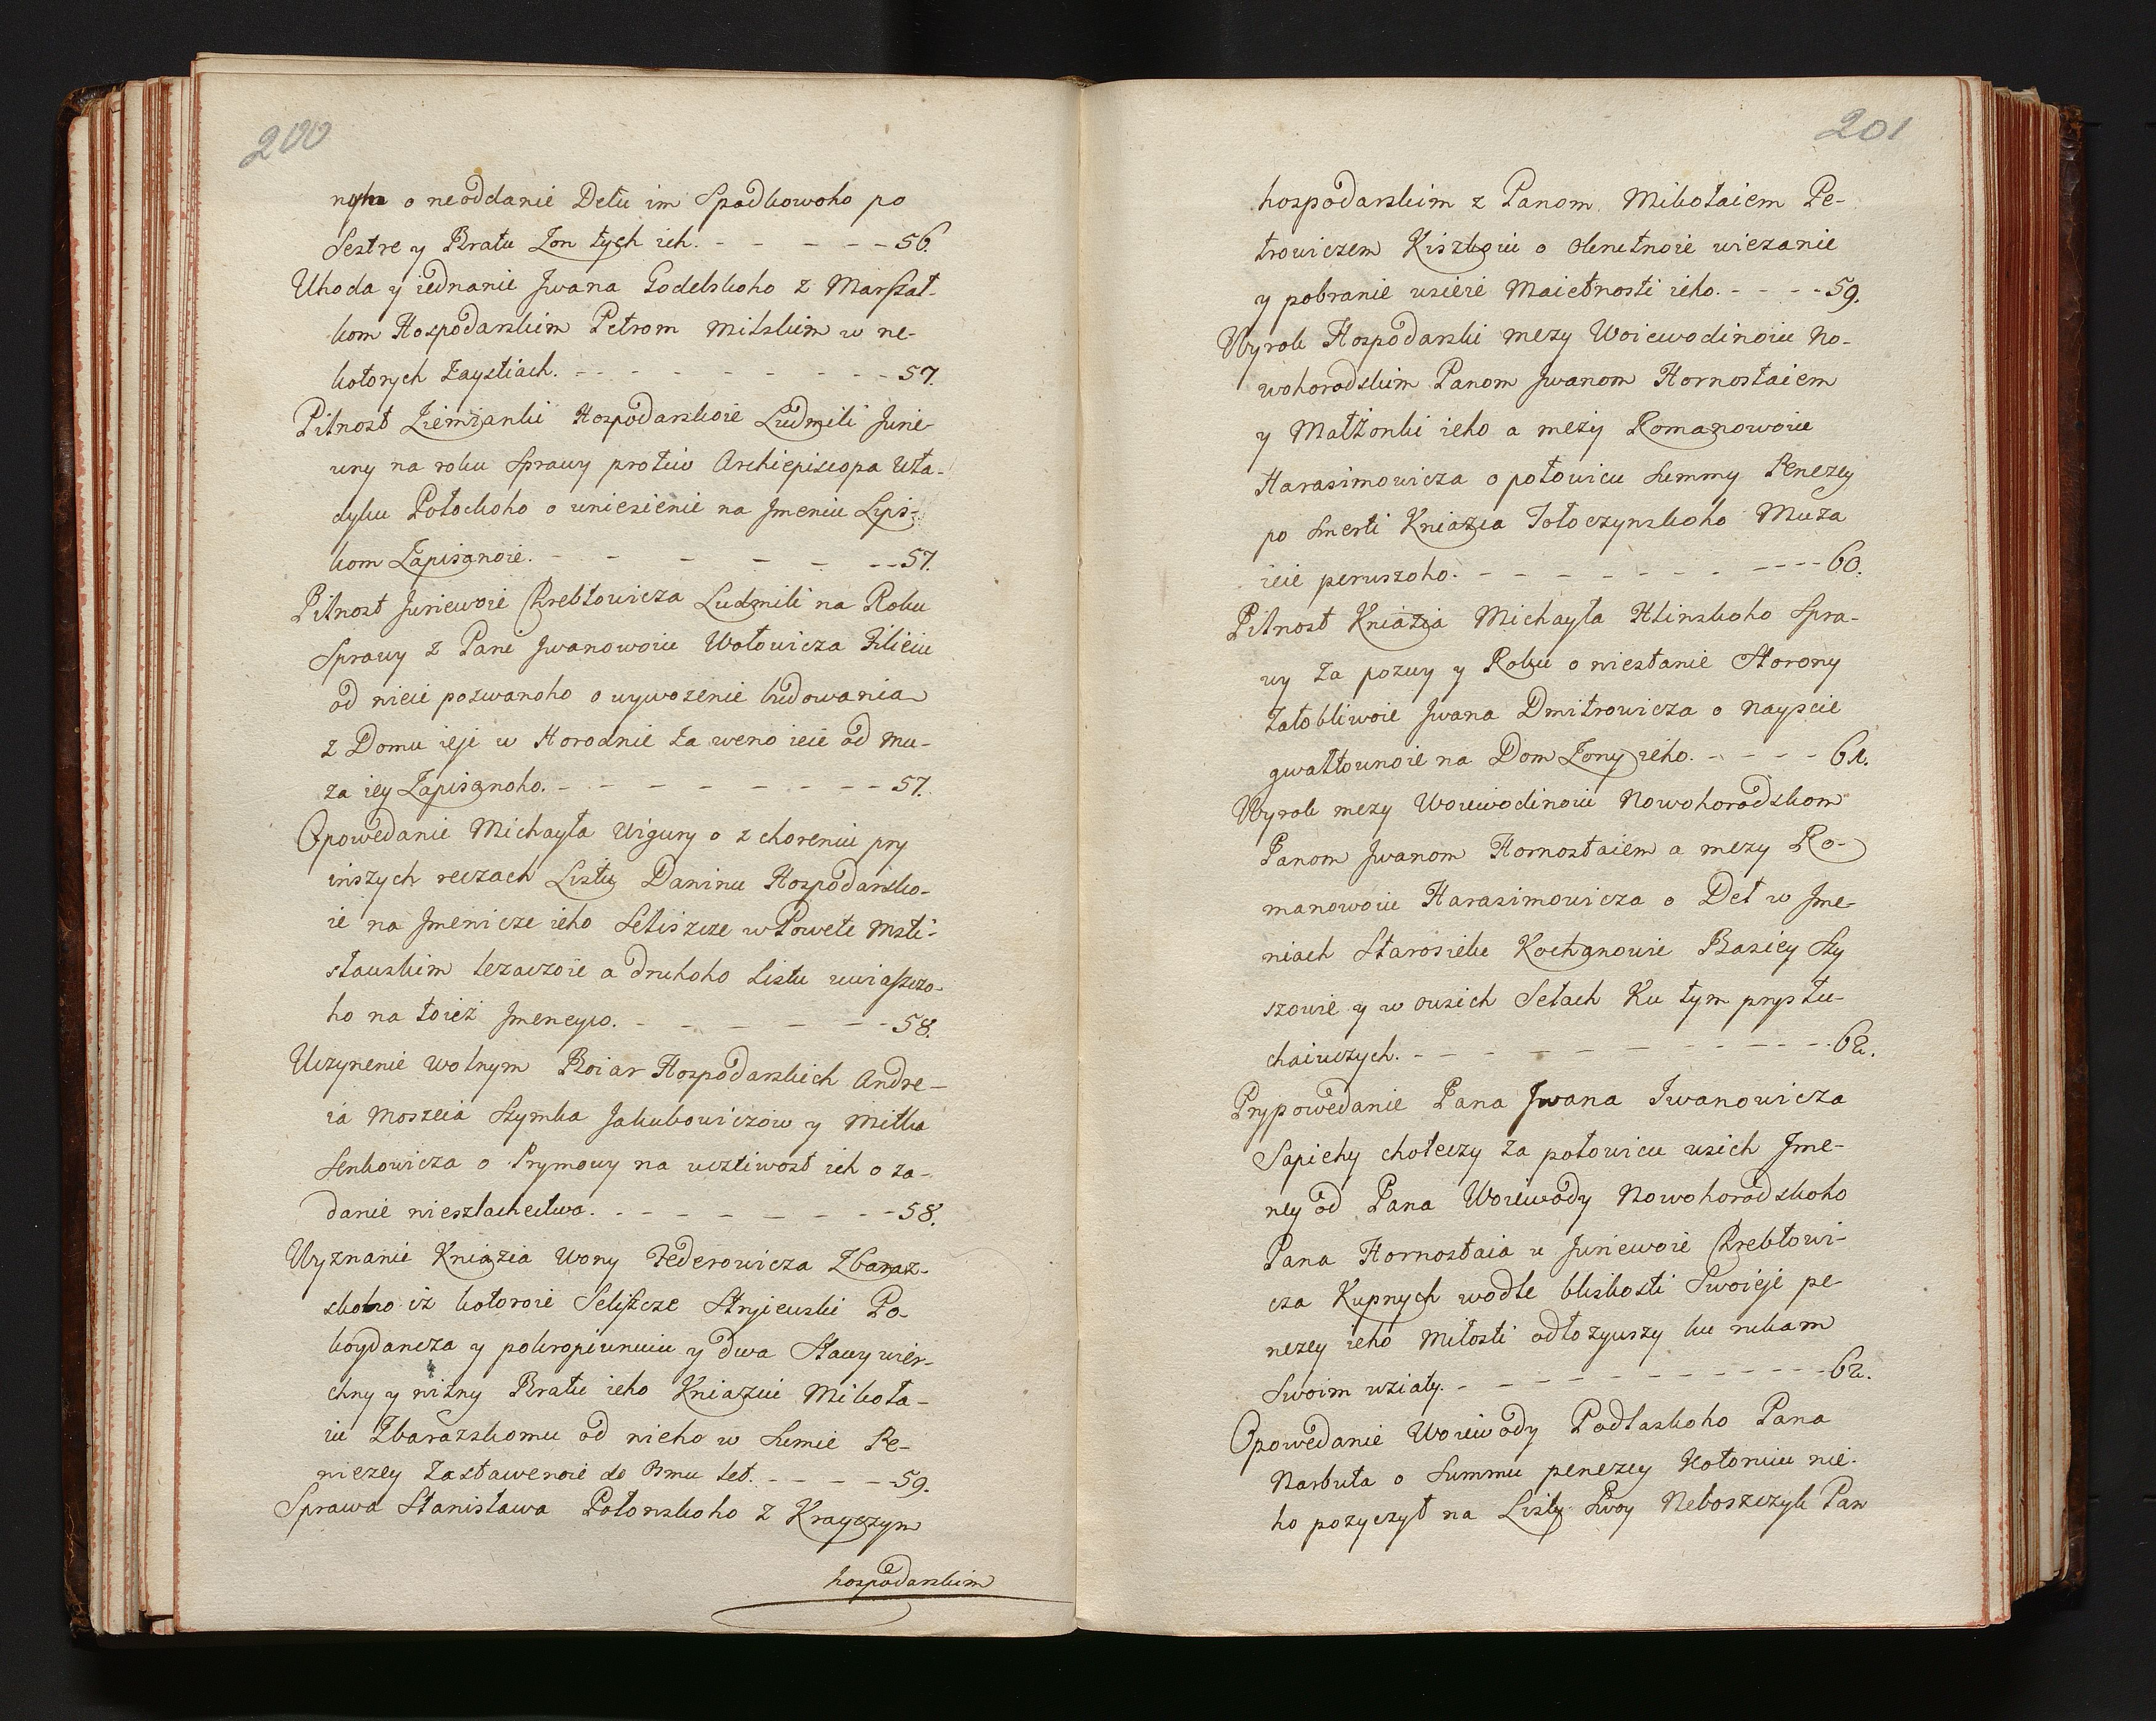 200
nym o neoddanie Dełu im Spadkowoho po
Sestre y Bratu Zon tych ich. - - - - - 56.
Uhoda y iednanie Jwana Godebskoho z Marszał-
kom Hospodarskim Petrom Mitskim w ne-
kotorych Zaystiach. - - - - - - - - - 57.
Pilnost Ziemianki Hospodarskoie Ludmili Jurie-
wny na roku Sprawy protiw Archiepiscopa Wła-
dyku Połockoho o uniesienie na Jmeniu Lips-
kom Zapisanoie. - - - - - - - 57.
Pilnost Juriewoie Chrebtowicza Ludmili na Roku
Sprawy z Pani Jwanowoiu Wołowicza Filiciu
od nieie pozwanoho o wywozenie budowania
z Domu ieje w Horodnie Za weno ieie od mu-
za iey Zapisanoho. - - - - - - - - 57.
Opowedanie Michayła Wigury o zhoreniu pry
inszych reczach Listu Daninu Hospodarsko-
ie na Jmenicze ieho Seliszcze w Powete Msti-
sławskim lezaczoie a druhoho Listu uwiaszczo-
ho na toież Jmeneyco. - - - - - - 58.
Uczynenie wolnym Boiar Hospodarskich Andre-
ia Moszeia Szymka Jakubowiczow y Mitka
Senkowicza o Prymowy na ucztiwost ich o za-
danie nieszlachectwa. - - - - - - - - 58.
Wyznanie Kniazia Wony Federowicza Zbaraz-
skoho iż kotoroie Seliszcze Stryiewski Po-
koydancza y pokropiwnuiu y dwa Stawy wier-
chny y niżny Bratu ieho Kniaziu Mikoła-
iu Zbarazskomu od nieho w Sumie Pe-
niezey Zastawenoie do 3mu let. - - - - - 59.
Sprawa Stanisława Połonskoho z Krayczym
hospodarskim
201
hospodarskim z Panom Mikołaiem Pe-
trowiczem Kiszkoiu o okrutnoie wiezanie
y pobranie usieie Maietnosti ieho. - - - - 59.
Wyrok Hospodarski mezy Woiewodinoiu No-
wohorodskim Panom Jwanom Hornostaiem
y Małżonki ieho a meży Romanowoiu
Harasimowicza o połowicu Summy Penezey
po Smerti Kniazia Tołoczynskoho Muża
ieie perwszoho. - - - - - - - - - - - - 60.
Pilnost Kniazia Michayła Hlinskoho Spra-
wy Za pozwy y Roku o niestanie Storony
Załobliwoie Jwana Dmitrowicza o Nayscie
gwałtownoie na Dom Zony ieho. - - - - 61.
Wyrok mezy Woiewodinoiu Nowohorodskom
Panom Jwanom Hornostaiem a mezy Ro-
manowoiu Harasimowicza o Deł w Jme-
niach Starosielu Kochanowie Basiey Szy
szowie y w wusich Sełach Ku tym prysłu-
chaiuczych. - - - - - - - - - - 62.
Prypowedanie Pana Jwana Iwanowicza
Sapiehy choteczy Za połowicu usich Jme-
ney od Pana Woiewody Nowohorodskoho
Pana Hornostaia u Juriewoie Chrebtowi-
cza Kupnych wodle bliskosti Swoieje pe-
nezey ieho Miłosti odłozywszy ku rukam
Swoim wziaty. - - - - - - - - - - - 62.
Opowedanie Woiewody Podlaskoho Pana
Narbuta o Summu penezey Kotoruiu nie-
ho pozyczył na Listy Swoy Neboszczyk Pan